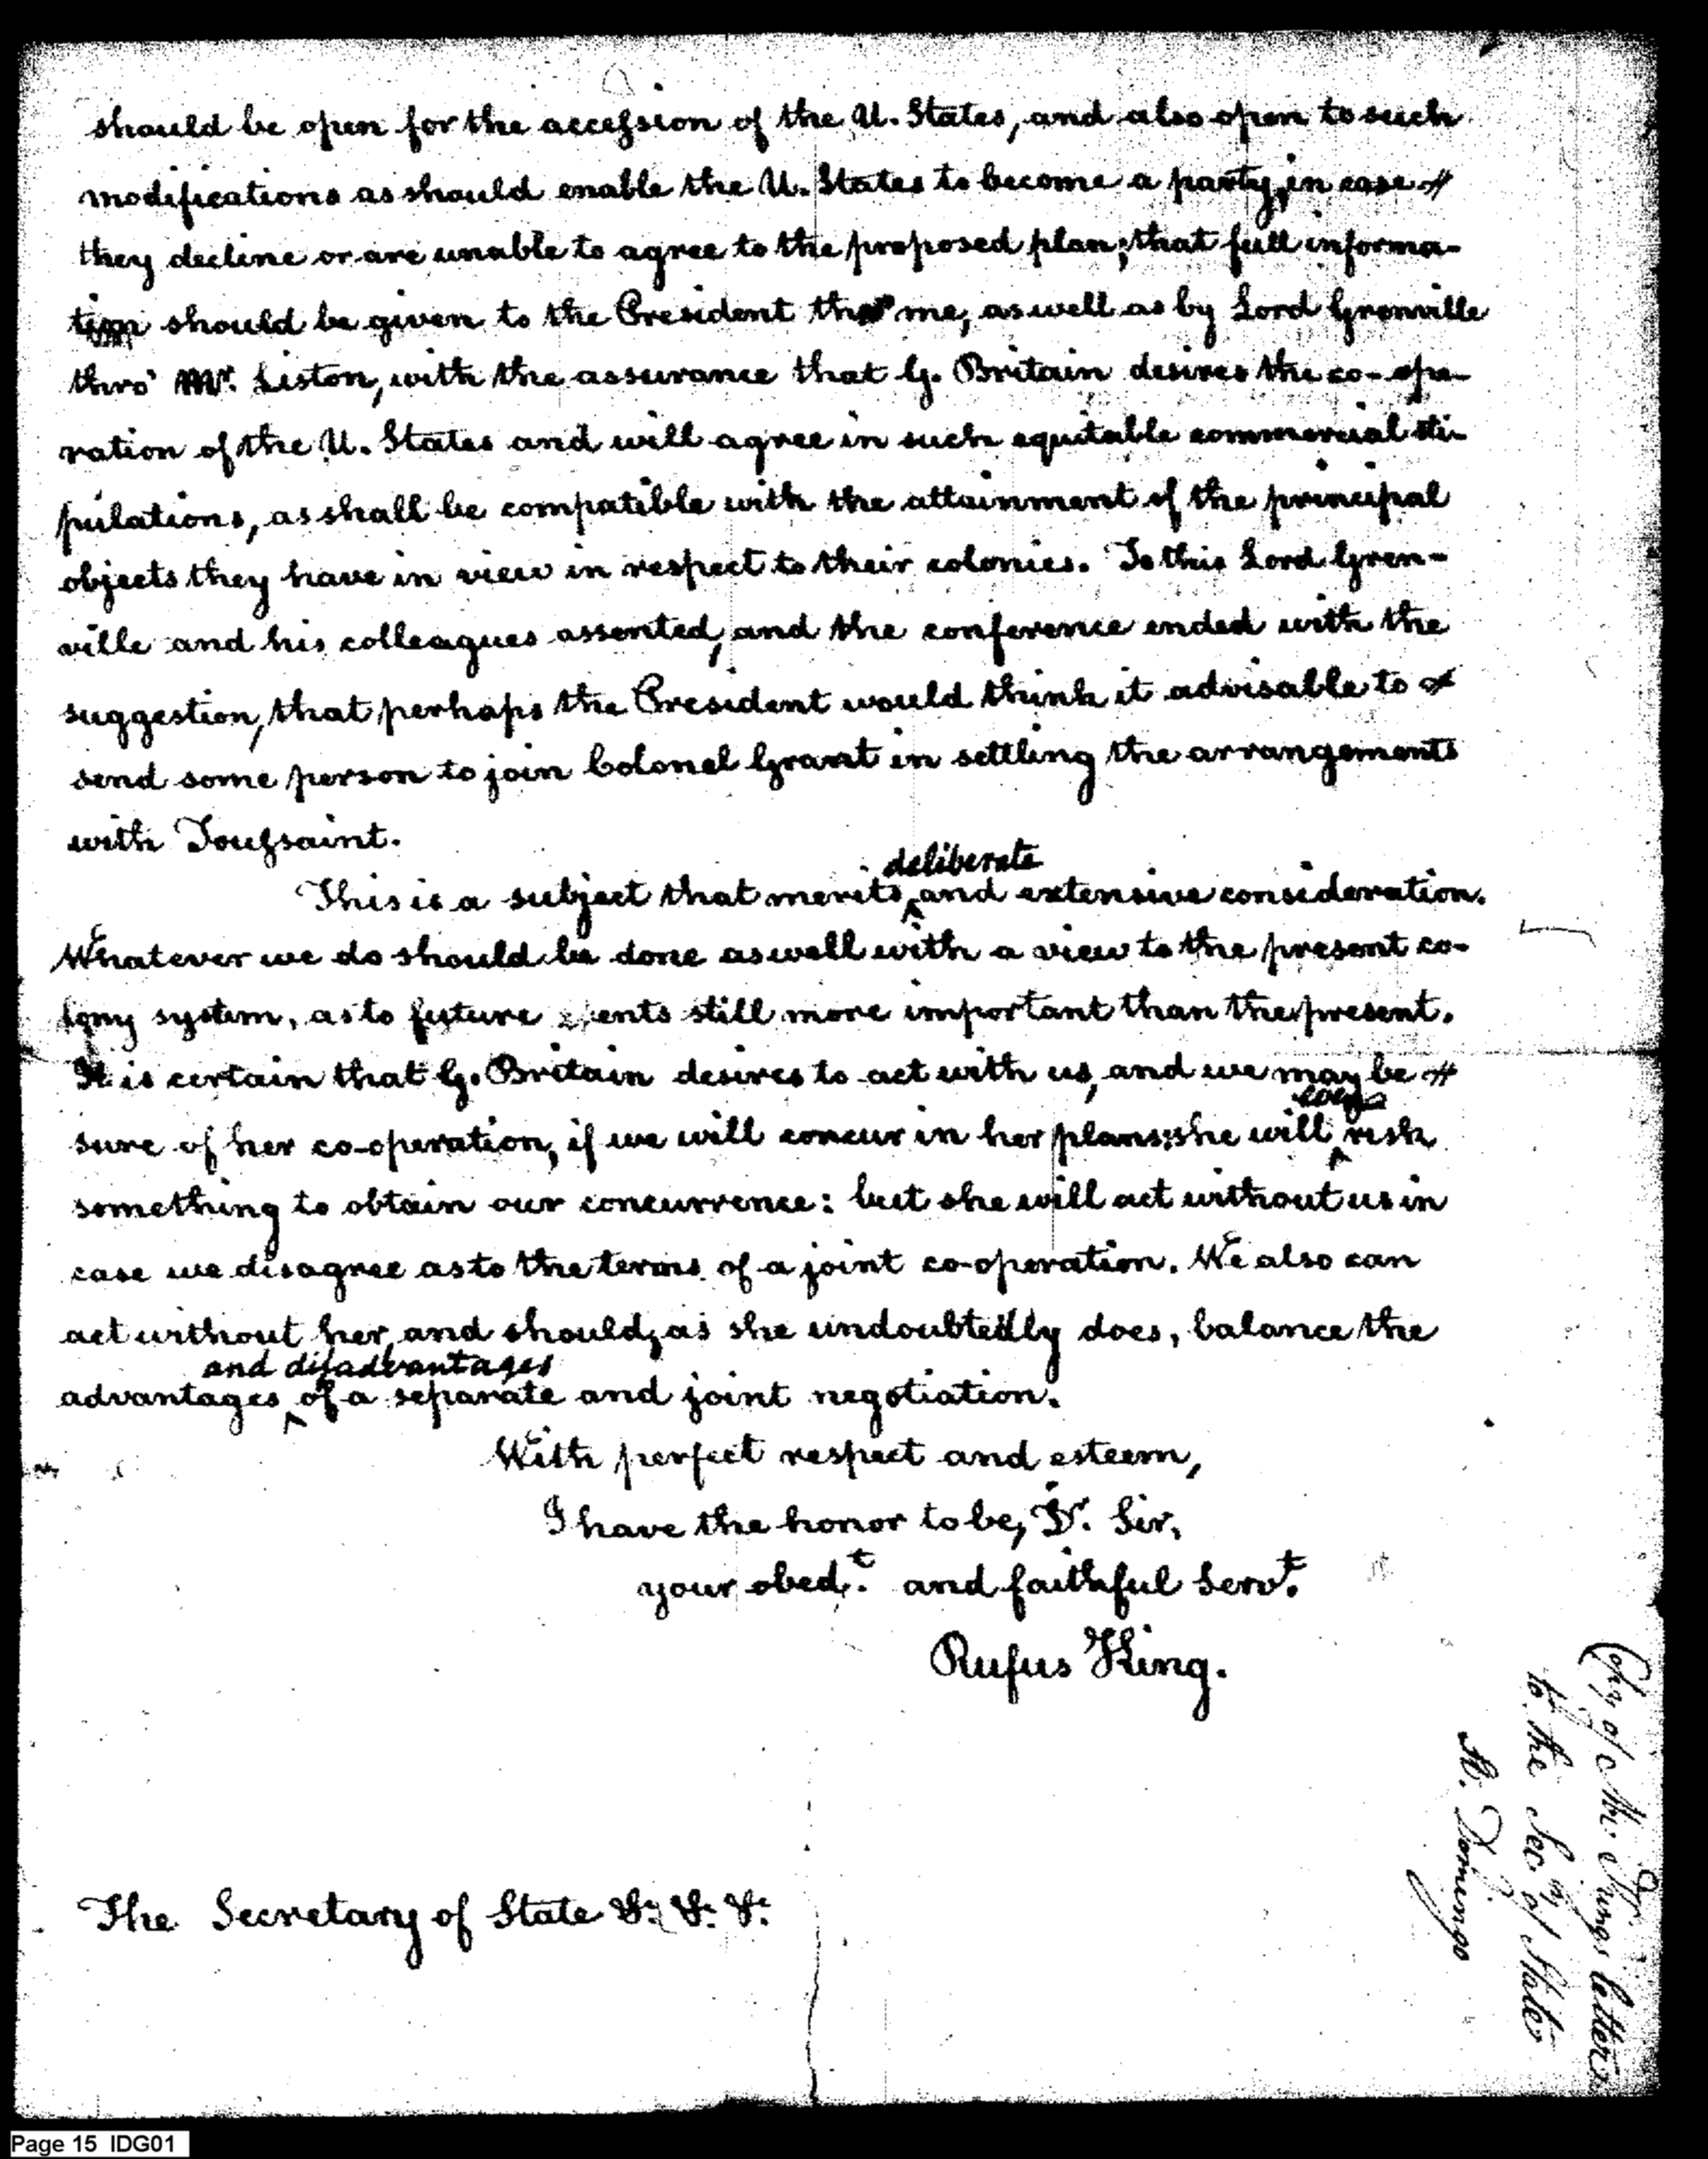 should be open for the accession of the U. States, and also open to such
modifications as should enable the U. States to become a party, in case
they decline or are unable to agree to the proposed plan; that full informa-
tion should be given to the President thro' me, as well as by Lord Grenville
thro' Mr. Liston, with the assurance that G. Britain desires the co-ope-
ration of the U. States and will agree in such equitable commercial sti-
pulations, as shall be compatible with the attainment of the principal
objects they have in view in respect to their colonies. To this Lord Gren-
ville and his colleagues assented, and the conference ended with the
suggestion, that perhaps the President would think it advisable to
send some person to join Colonel Grant in settling the arrangements
with Toussaint.
deliberate
This is a subject that merits ‸ and extensive consideration.
Whatever we do should be done as well with a view to the present co-
lony system, as to future events still more important than the present.
It is certain that G. Britain desires to act with us, and we may be
sure of her co-operation, if we will concur in her plans; she will ‸ risk
something to obtain our concurrence: but she will act without us in
case we disagree as to the terms of a joint co-operation. We also can
act without her, and should, as she undoubtedly does, balance the
and disadvantages
advantages ‸ of a separate and joint negotiation.
With perfect respect and esteem,
I have the honor to be, Dr. Sir,
your obedt. and faithful Servt.
Rufus King.
The Secretary of State &. &. &.
Copy of Mr. Kings letters
to the Secy of State
St. Domingo
Page 15 IDG01